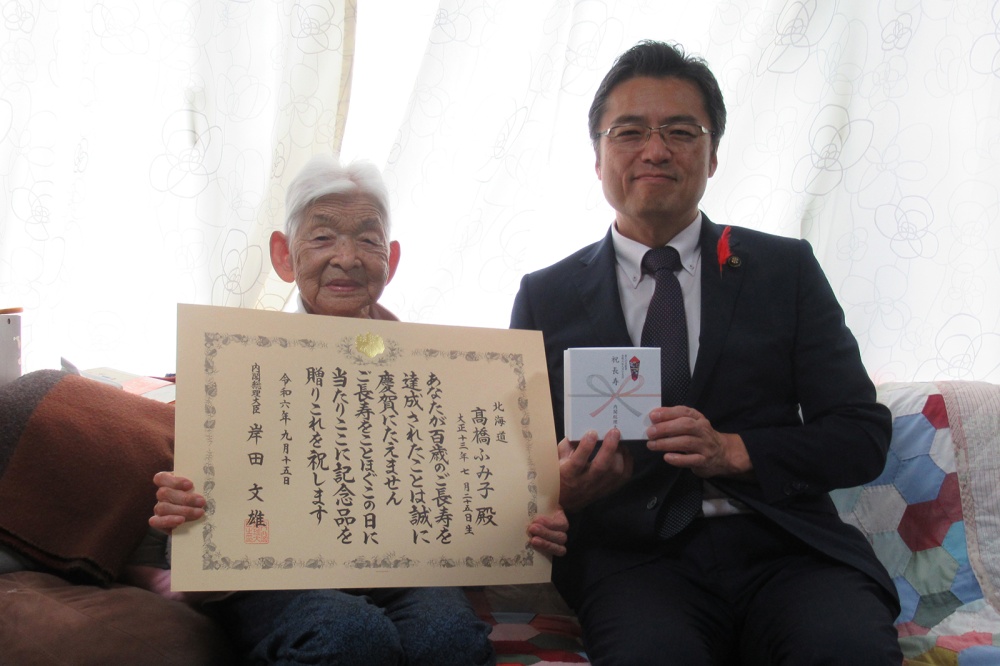 北海道
髙橋ふみ子 殿
大正十三年 七月二十五日生
あなたが百歳のご長寿を
達成されたことは誠に
慶賀にたえません
ご長寿をことほぐこの日に
当たりここに記念品を
贈りこれを祝します
令和六年 九月十五日
内閣総理大臣 岸田 文雄
祝長寿